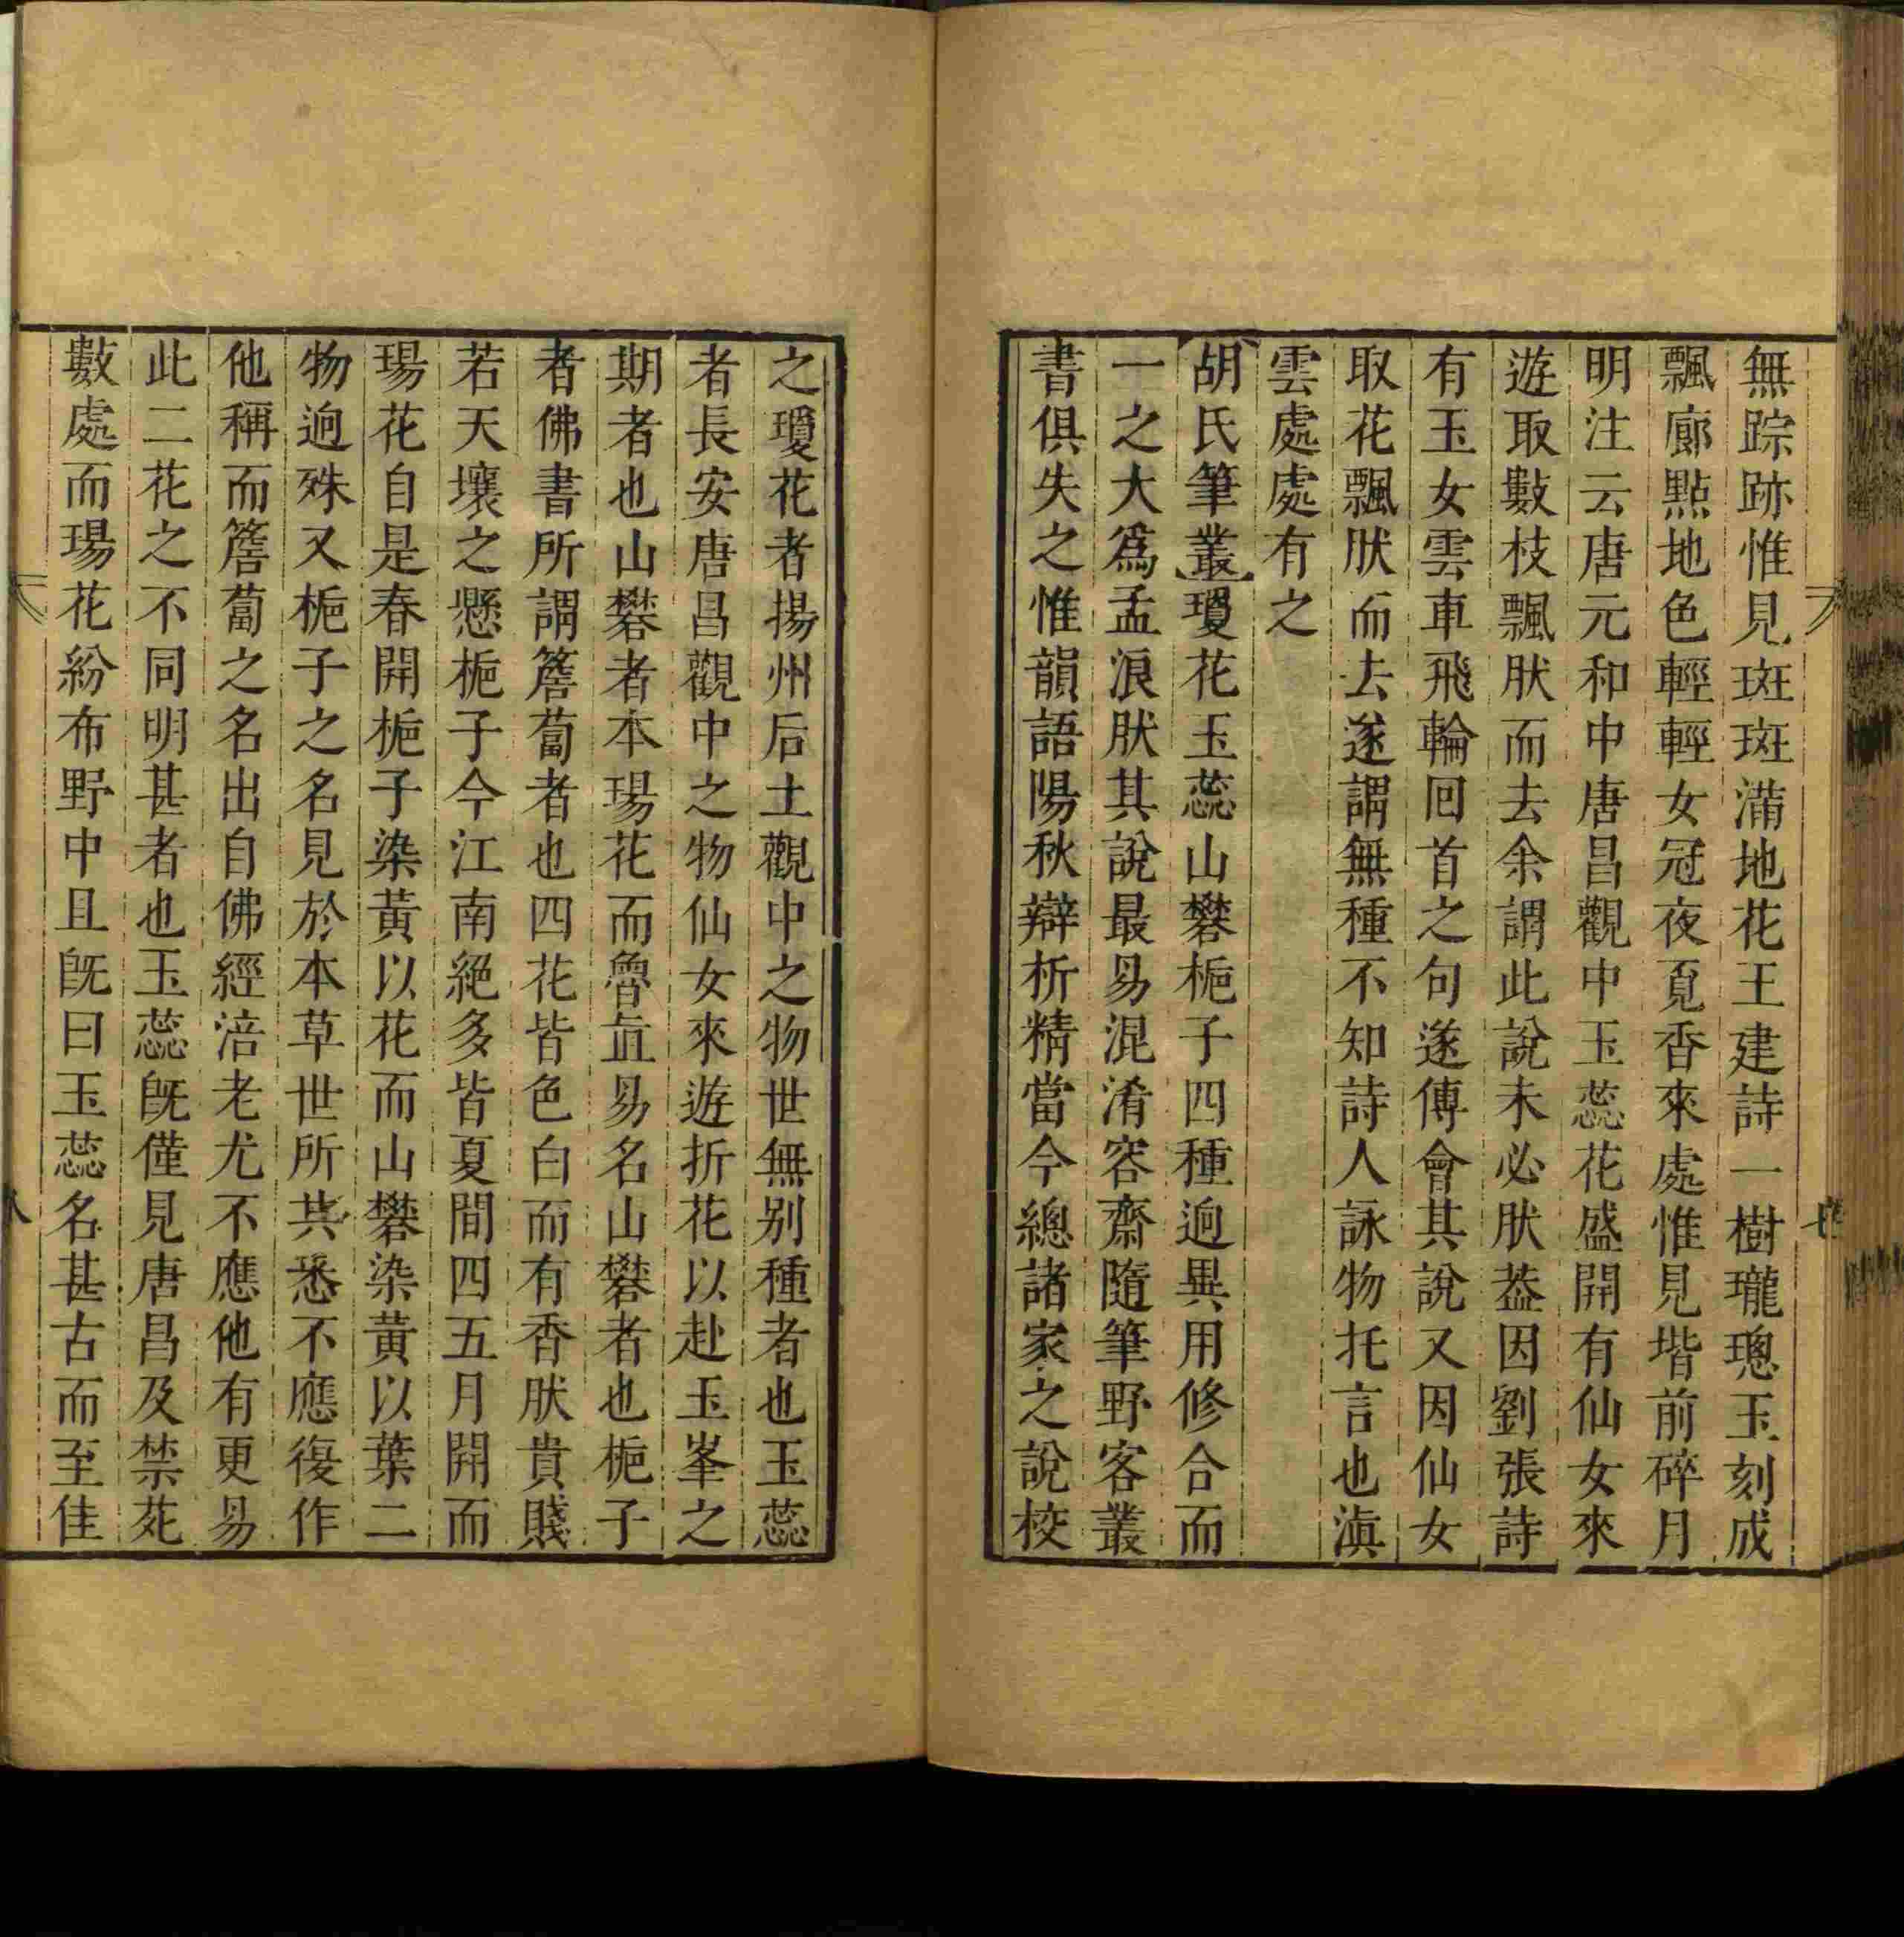 無踪跡惟見斑斑滿地花王建詩一樹瓏璁玉刻成
飄廊點地色輕輕女冠夜覔香來處惟見堦前碎月
明注云唐元和中唐昌觀中玉蕊花盛開有仙女來
遊取數枝飄肰而去余謂此說未必肰葢因劉張詩
有玉女雲車飛輪回首之句遂傳會其說又因仙女
取花飄肰而去遂謂無種不知詩人詠物托言也滇
雲處處有之
胡氏筆叢瓊花玉蕊山礬梔子四種逈異用修合而
一之大爲孟浪肰其說最易混淆容齋隨筆野客叢
書俱失之惟韻語陽秋辯析精當今總諸家之說校
之瓊花者揚州后土觀中之物世無別種者也玉蕊
者長安唐昌觀中之物仙女來遊折花以赴玉峯之
期者也山礬者本瑒花而魯直易名山礬者也梔子
者佛書所謂簷蔔者也四花皆色白而有香肰貴賤
若天壤之懸梔子今江南絕多皆夏間四五月開而
瑒花自是春開梔子染黃以花而山礬染黃以葉二
物逈殊又梔子之名見於本草世所共悉不應復作
他稱而簷蔔之名出自佛經涪老尤不應他有更易
此二花之不同明甚者也玉蕊旣僅見唐昌及禁苑
數處而瑒花紛布野中且旣曰玉蕊名甚古而至佳